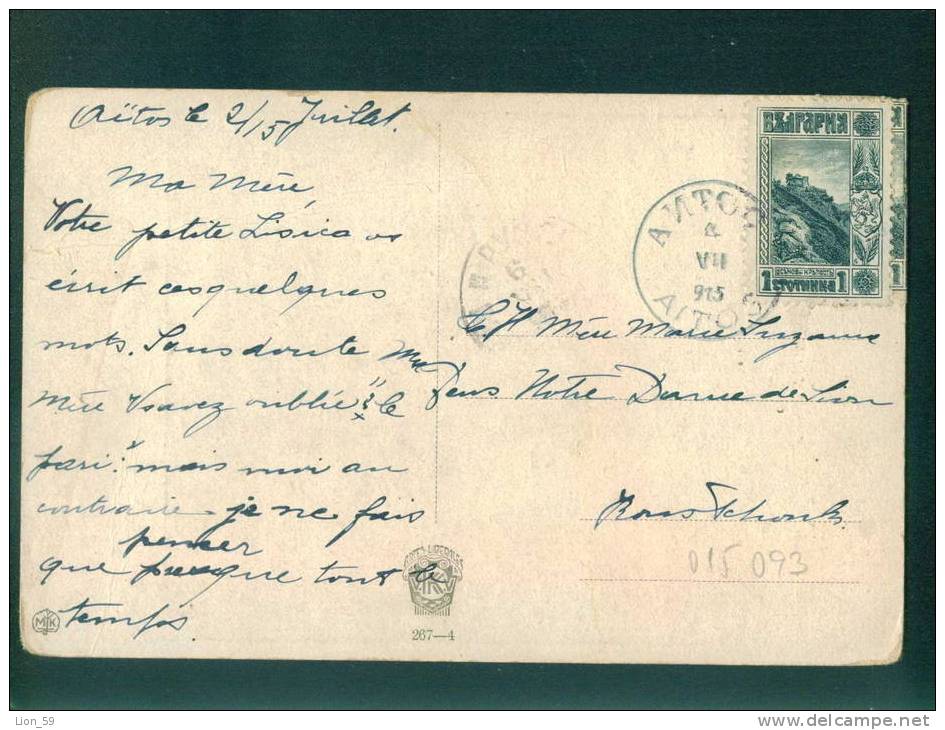 Aïtos le 2/15 Juillet.
Ma Mère,
Votre petite Lisica os
écrit ces quelques
mots. Sans doute Ma
Mère Vs avez oublié "le
pari" mais moi au
contraire je ne fais
penser
que presque tout le
temps.
БЪЛГАРИЯ
1 СТОТИНКА 1
АИТОС
VII
915
AITOS
Mère Marie Suzanne
Notre Dame de Sion
Roustchouk
015 093
MK
267—4
Lion_59
www.delcampe.net